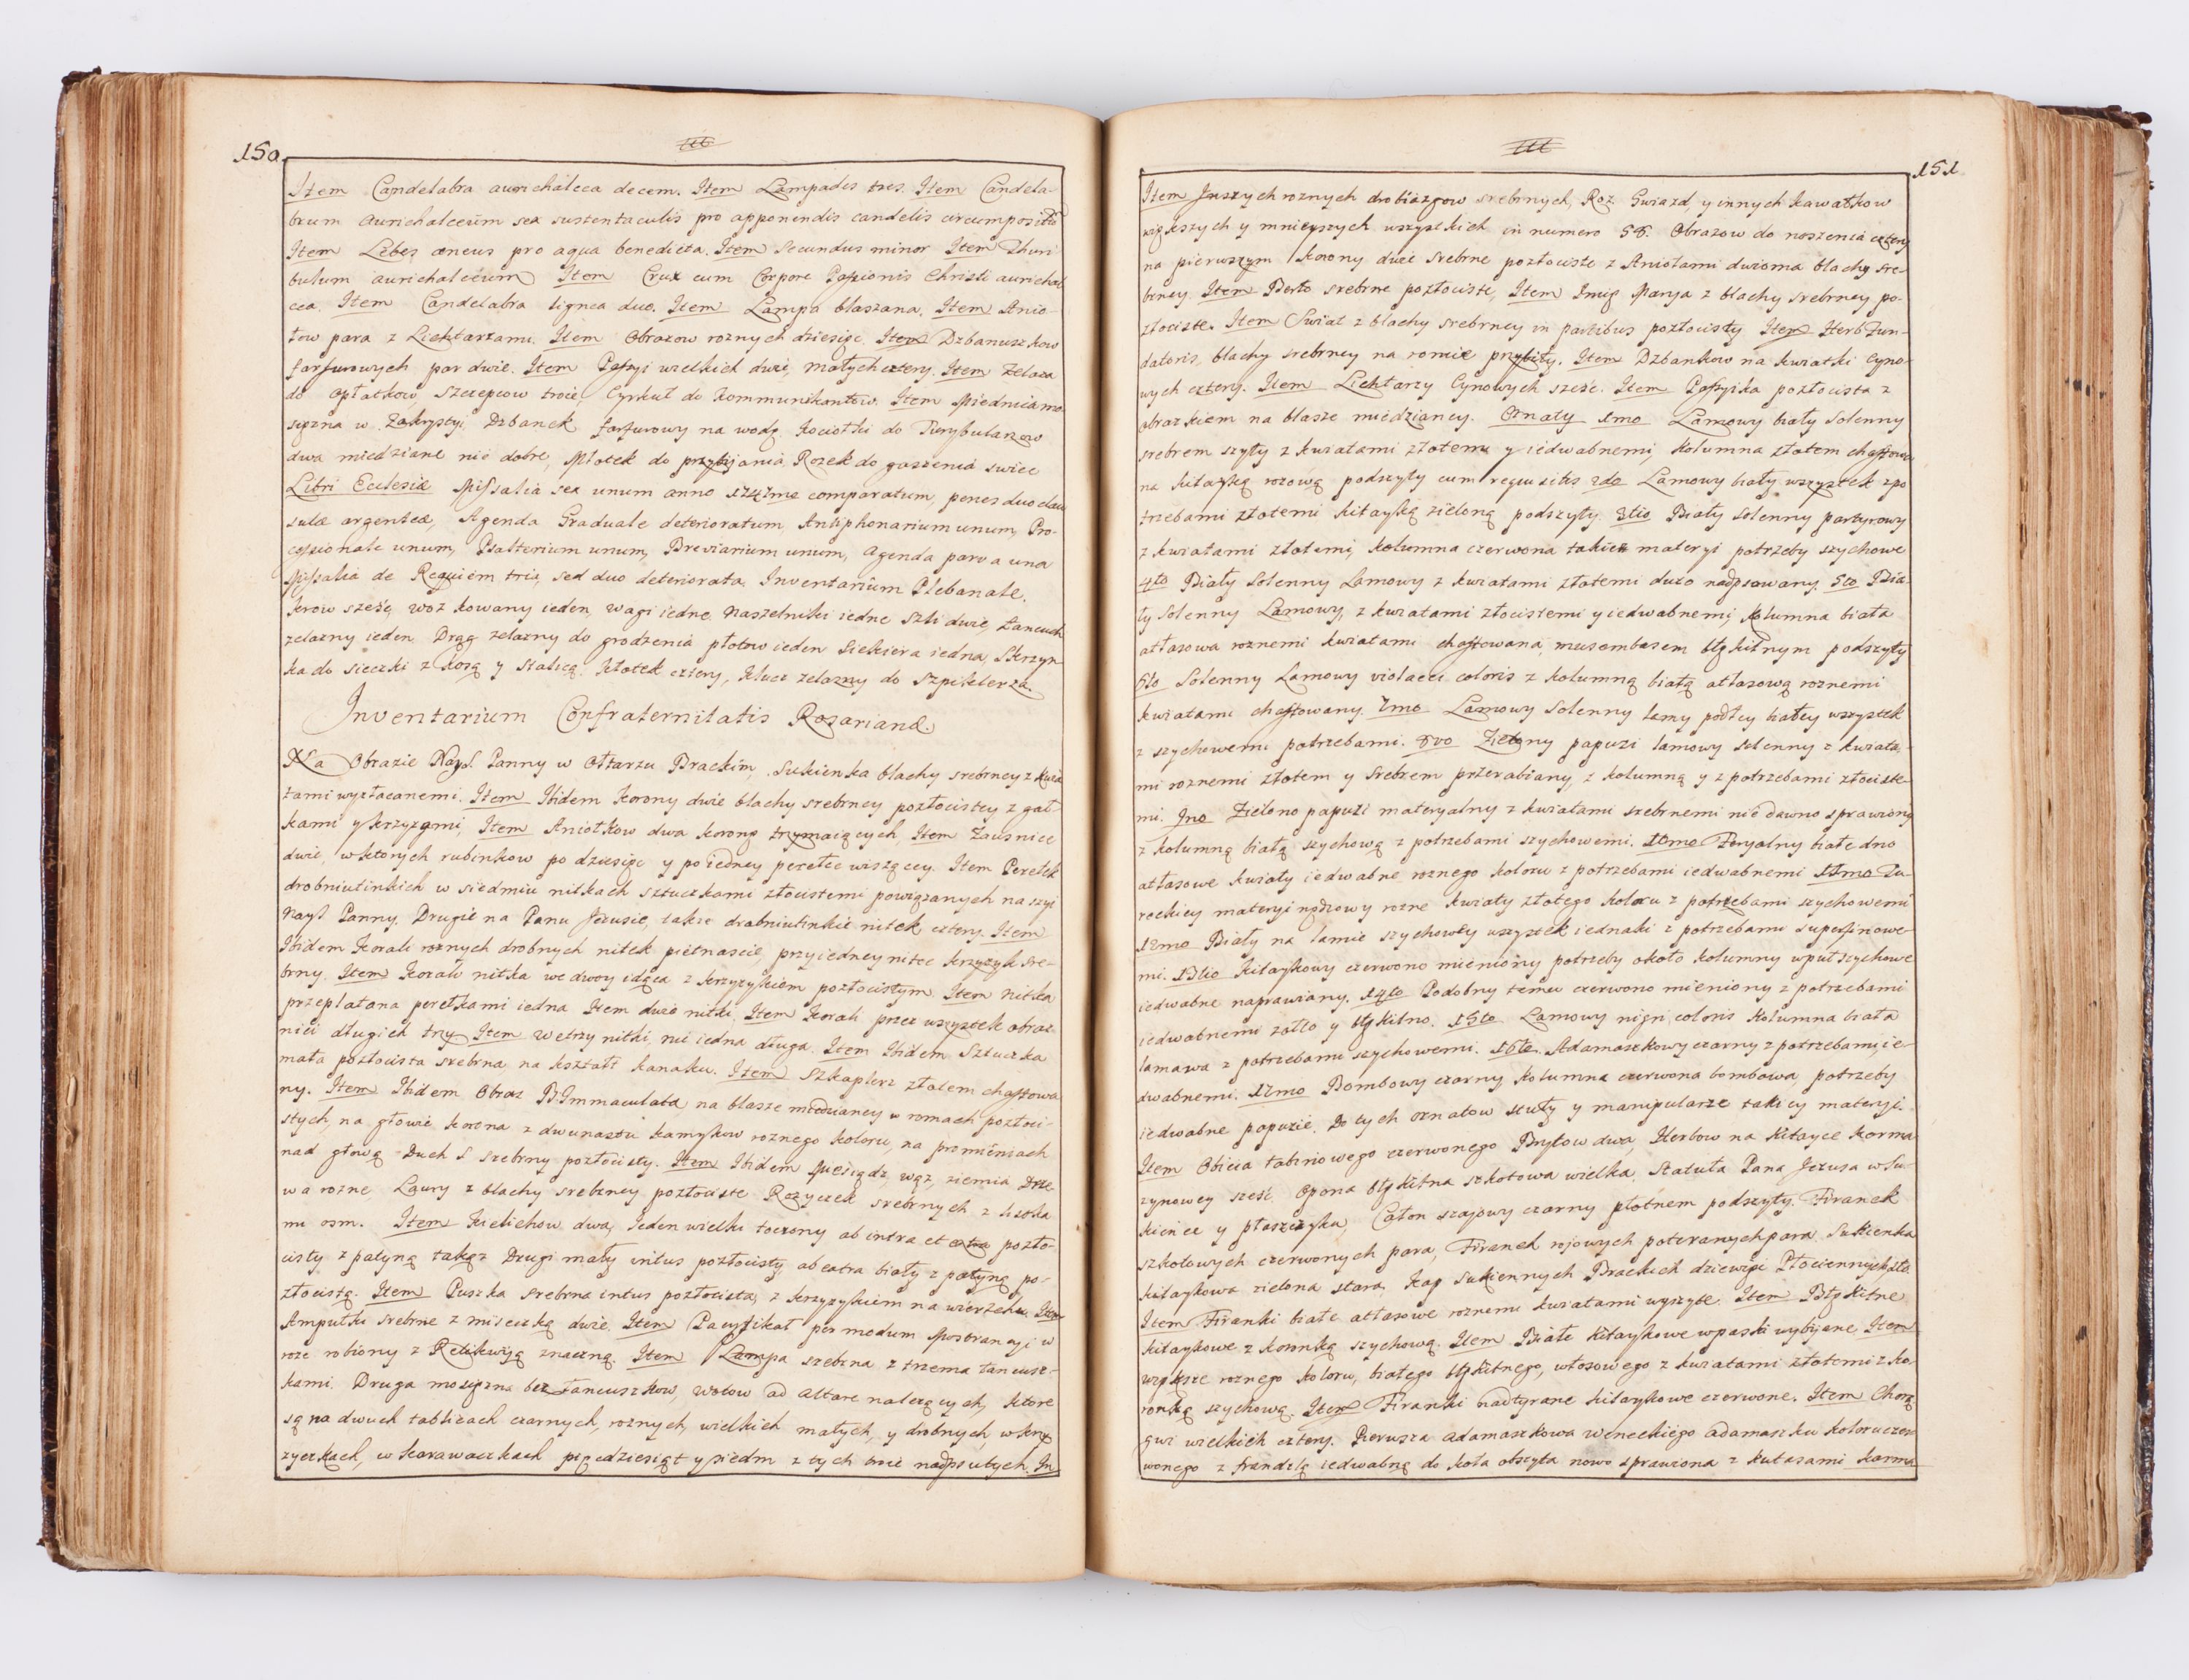 150.
Item Candelabra aurichalcea decem. Item Lampades tres. Item Candela-
brum aurichalceum sex sustentaculis pro apponendis candelis circumpositu
Item Lebes æneus pro aqua benedicta. Item Secundus minor Item Thuri
bulum aurichalceum Item Crux cum Corpore Passionis Christi aurichal
cea. Item Candelabra lignea duo. Item Lampa blaszana, Item Anio-
łow para z Lichtarzami. Item Obrazow roznych dziesięć. Item Dzbanuszkow
farfurowych par dwie. Item Passyi wielkich dwie, małych cztery. Item Zelaza
do opłatkow, Szczepcow troie, Cyrkuł do Kommunikantow. Item Miednica mo
siężna w Zakrystyi, Dzbanek farfurowy na wodę, Kociołki do Turybularzow
dwa miedziane nie dobre, Młotek do przybijania, Rozek do gaszenia swiec
Libri Ecclesiæ Missalia sex unum anno 1747mo comparatum, penes duo clau
sulæ argenteæ, Agenda Graduale deterioratum, Antiphonarium unum, Pro-
cessionale unum, Psalterium unum, Breviarium unum, agenda parva una
Missalia de Requiem tria, sed duo deteriorata. Inventarium Plebanale.
Krow sześć, woz kowany ieden, wagi iedne, Naszelniki iedne Szli dwie, Łancuch
zelazny ieden, Drąg zelazny do grodzenia płotow ieden Siekiera iedna, Skrzyn-
ka do sieczki z kosą y Stalicą. Kłotek cztery, Klucz zelazny do Szpiklerza.
Inventarium Confraternitatis Rosarianæ.
Na Obrazie Nays. Panny w Ołtarzu Brackim, Sukienka blachy srebrney z kwia
tami wyzłacanemi. Item Ibidem Korony dwie blachy srebrney pozłocistey z gał-
kami y krzyzami, Item Aniołkow dwa koronę trzymaiących, Item Zausnice
dwie, w ktorych rubinkow po dziesięc y po iedney perełce wiszącey. Item Perełek
drobniutinkich w siedmiu nitkach sztuczkami złocistemi powiązanych na szyi
Nays. Panny. Drugie na Panu Jezusie, takze drobniutinkie nitek cztery. Item
Ibidem Korali roznych drobnych nitek pietnascie, przy iedney nitce krzyzyk sre-
brny. Item Korali nitka we dwoy idąca z krzyzykiem pozłocistym. Item nitka
przeplatana perełkami iedna Item dwie nitki, Item Korali przez wszystek obraz
nici długich trzy Item we trzy nitki, nić iedna długa. Item Ibidem Sztuczka
mała pozłocista srebrna na kształt kanaku. Item Szkaplerz złotem chaftowa
ny. Item Ibidem Obraz B. Immaculatæ na blasze miedzianey w ramach pozłoci-
stych, na głowie korona z dwunastu kamykow roznego koloru, na promieniach
nad głową Duch S. srebrny pozłocisty. Item Ibidem Miesiądz, wąz, ziemia Drze-
wa rozne, Laury z blachy srebrney pozłociste Rozyczek srebrnych z listka
mi osm. Item Kielichow dwa, Jeden wielki toczony ab intra et extra pozło-
cisty z patyną takąz Drugi mały intus pozłocisty ab extra biały z patyną po-
złocistą. Item Puszka srebrna intus pozłocista, z krzyzykiem na wierzchu. Item
Ampułki srebrne z miseczką dwie. Item Pacyfikał per modum Monstrancyi w
roze robiony z Relikwią znaczną. Item Lampa srebrna z trzema łancusz-
kami. Druga mosiężna bez łancuszkow, wotow ad altare nalezących, ktore
są na dwuch tablicach czarnych, roznych, wielkich małych, y drobnych, w krzy
zyczkach, w karawaczkach pięcdziesiąt y siedm z tych troie nadpsutych. In
151.
Item Jnszych roznych drobiazgow srebrnych, Roz Gwiazd, y innych kawałkow
większych y mnieyszych wszystkich in numero 58. Obrazow do noszenia cztery
na pierwszym Korony dwie srebrne pozłociste z Aniołami dwoma blachy sre-
brney. Item Berło srebrne pozłociste, Item Jmię Marya z blachy srebrney po-
złociste. Item Swiat z blachy srebrney in partibus pozłocisty Item Herb Fun-
datoris, blachy srebrney na romie przybity. Item Dzbankow na kwiatki Cyno-
wych cztery. Item Lichtarzy Cynowych sześc. Item Passyika pozłocista z
obrazkiem na blasze miedzianey. Ornaty 1mo Lamowy biały Solenny
srebrem szyty z kwiatami złotemi y iedwabnemi, kolumna złotem chaftowa
na kitayką rozową podszyty cum requisitis 2do Lamowy biały wszystek z po
trzebami złotemi kitayką zieloną podszyty. 3tio Biały Solenny parterowy
z kwiatami złotemi, kolumna czerwona takiez materyi potrzeby szychowe
4to Biały Solenny Lamowy z kwiatami złotemi duzo nadpsowany. 5to Bia-
ły Solenny Lamowy, z kwiatami złocistemi y iedwabnemi, kolumna biała
atłasowa roznemi kwiatami chaftowana, musembasem błękitnym podszyty
6to Solenny Lamowy violacei coloris z kolumną białą atłasową roznemi
kwiatami chaftowany. 7mo Lamowy Solenny lamy podłey białey wszystek
z szychowemi potrzebami. 8vo Zielony papuzi lamowy solenny z kwiata-
mi roznemi złotem y Srebrem przerabiany, z kolumną y z potrzebami złociste-
mi. 9no Zielono papuzi materyalny z kwiatami srebrnemi nie dawno sprawiony
z kolumną białą szychową z potrzebami szychowemi. 10mo Feryalny białe dno
atłasowe kwiaty iedwabne roznego koloru z potrzebami iedwabnemi 11mo Tu-
reckiey materyi rządzowy rozne kwiaty złotego koloru z potrzebami szychowemi
12mo Biały na lamie szychowey wszystek iednaki z potrzebami superfinowe-
mi. 13tio Kitaykowy czerwono mieniony potrzeby około kolumny wpuł szychowe
iedwabne naprawiany. 14to Podobny temu czerwono mieniony z potrzebami
iedwabnemi zołto y błękitno. 15to Lamowy nigri coloris Kolumna biała
lamawa z potrzebami szychowemi. 16to Adamaszkowy czarny z potrzebami, ie-
dwabnemi. 17mo Bombowy czarny kolumna czerwona bombowa, potrzeby
iedwabne papuzie. Do tych ornatow stuły y manipularze takiey materyi.
Item Obicia tabinowego czerwonego Brytow dwa, Herbow na kitayce karma
zynowey sześć Opona błękitna szkotowa wielka, Statuła Pana Jezusa w Su-
kience y płaszczyku, Całon szajowy czarny płotnem podszyty. Firanek
szkotowych czerwonych para, Firanek rojowych poteranych para Sukienka
kitaykowa zielona stara, Kap Sukiennych Brackich dziewięć Płociennych sto
Item Firanki białe atłasowe roznemi kwiatami wyszyte. Item Błękitne
kitaykowe z koronką szychową. Item Białe kitaykowe w paski wybijane, Item
większe roznego koloru, białego błękitnego, włosowego z kwiatami złotemi z ko-
ronką szychową. Item Firanki nadtyrane kitaykowe czerwone. Item Chorą
gwi wielkich cztery. Pierwsza adamaszkowa weneckiego adamaszku koloru czer
wonego z frandzlą iedwabną do koła obszyta nowo sprawiona z kutasami karma